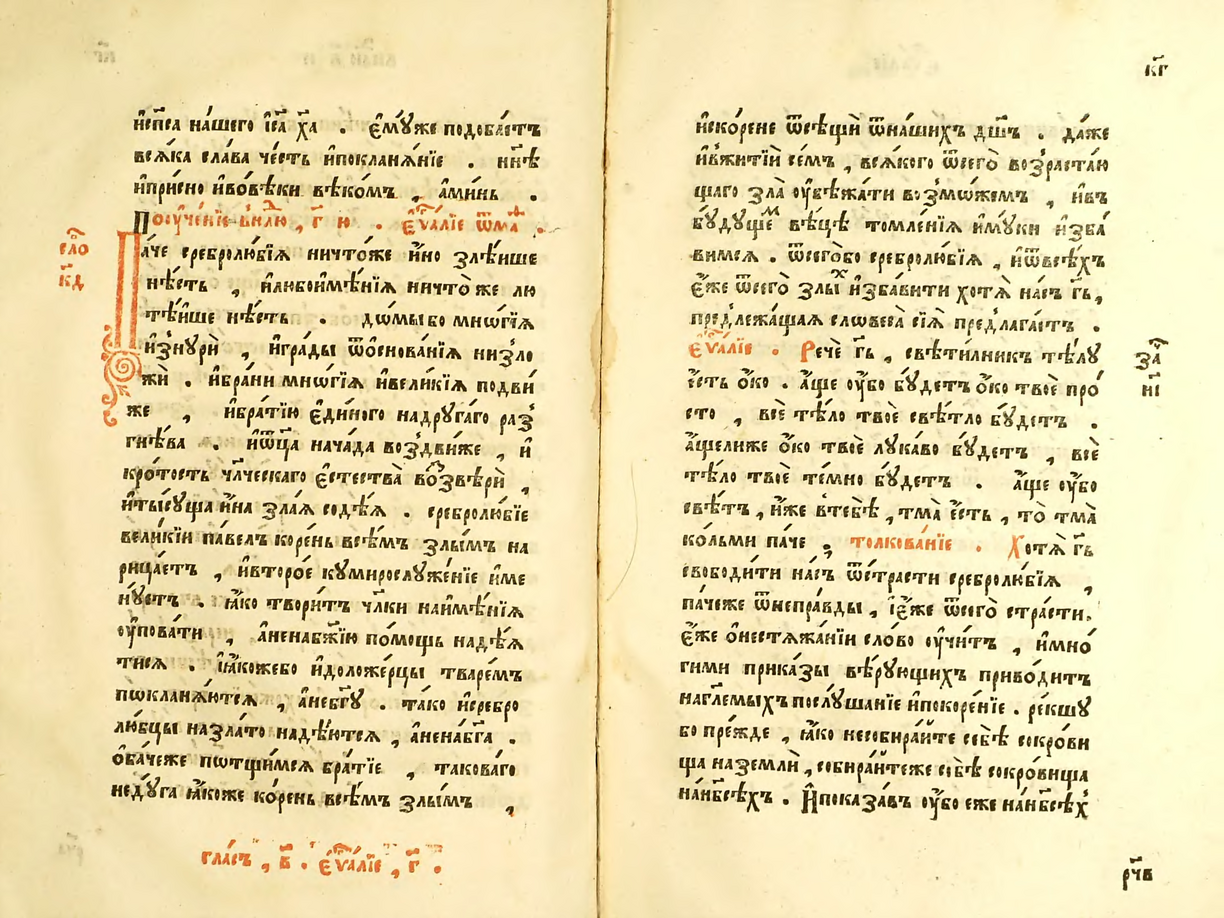 и҆сп҃са на́шего і҆с҃а х҃а . є҆мꙋ́же подоба́етъ
всѧ́ка сла́ва че́сть и҆покланѧ́нїе . ны́нѣ
и҆при́сно и҆вовѣ́ки вѣко́мъ , а҆ми́нь .
Поꙋче́нїе внлю , г҃ ю . є҆ѵⷢ҇а́лїе ѿма .
сло
к҃д
Па́че сребролю́бїѧ ничто́же и҆́но ѕлѣ́йше
нѣ́сть , и҆любоимѣ́нїѧ ничто́ же лю
тѣ́йше нѣ́сть . до́мы бо мнѡ́гїѧ
и҆знꙋрѝ , и҆гра́ды ѿѡснова́нїѧ низло
жѝ . и҆бра́ни мнѡ́гїѧ и҆вели́кїѧ подви́
же , и҆бра́тїю є҆ди́ного надрꙋга́го раз̾
гнѣ́ва . и҆ѻ҆тца̀ нача́да воздви́же , и҆
кро́тость чл҃ческаго є҆стества̀ во́звѣрѝ ,
и҆ты́сꙋща и҆́на ѕла́ѧ содѣ́ѧ . сребролю́бїе
вели́кїи па́велъ ко́рень всѣ́мъ ѕлы́мъ на
рица́етъ , и҆второ́е кꙋмирослꙋже́нїе и҆ме
нꙋ́етъ . ꙗ҆́ко твори́тъ чл҃ки наимѣ́нїѧ
ᲂу҆пова́ти , а҆ненаб҃жїю по́мощь надѣ́ѧ
тисѧ . ꙗ҆́кожебо и҆доложе́рцы тваре́мъ
поклана́ютсѧ , а҆небг҃ꙋ . та́ко и҆сребро
лю́бцы назла́то надѣ́ютсѧ , а҆ненаб҃га .
ѻ҆ба́чеже потщи́мсѧ бра́тїе , такова́го
недꙋ́га ꙗ҆́коже ко́рень всѣ́мъ ѕлы́мъ ,
гла́съ , в҃ . є҆ѵⷢ҇а́лїе , г҃ .
к҃г
и҆ско́рене ѿсѣ́щи ѿна́шихъ дш҃ъ . да́же
и҆вжитїѝ се́мъ , всѧ́кого ѿсегѡ̀ возраста́ю
щаго ѕла̀ ᲂу҆бѣжа́ти возмо́жемъ , и҆въ
бꙋ́дꙋщеⷨ вѣ́цѣ томле́нїѧ и҆мꙋ́ки и҆зба́
вимсѧ . ѿсегобо сребролю́бїѧ , и҆ѿвсѣ́хъ
є҆́же ѿсегѡ̀ ѕлы́ⷯ и҆зба́вити хотѧ̀ на́съ гд҃ь,
предлежа́щаѧ словеса̀ сїѧ̀ предлага́етъ .
є҆ѵⷢ҇а́лїе . Речѐ гд҃ь , свѣти́лникъ тѣ́лꙋ
за
н҃і
є҆́сть ѻ҆́ко . а҆́ще ᲂу҆́бо бꙋ́детъ ѻ҆́ко твоѐ про́
сто , всѐ тѣ́ло твоѐ свѣ́тло бꙋ́детъ .
а҆́щелиже ѻ҆́ко твоѐ лꙋка́во бꙋ́детъ , всѐ
тѣ́ло твоѐ те́мно бꙋ́детъ . а҆́ще ᲂу҆́бо
свѣ́тъ , и҆́же втебѣ̀ , тма̀ є҆́сть , то̀ тма̀
кольмѝ па́че . толкова́нїе . Хотѧ̀ гд҃ь
свободи́ти на́съ ѿстра́сти сребролю́бїѧ ,
па́чеже ѿнепра́вды , і҆є҆́же ѿсегѡ̀ стра́сти.
є҆́же ѻ҆нестѧжа́нїи сло́во ᲂу҆чи́тъ , и҆мно́
гими прика́зы вѣ́рꙋющихъ приво́дитъ
наглемыхъ послꙋша́нїе и҆покоре́нїе . ре́кшꙋ
бо пре́жде , ꙗ҆́ко несобира́йте себѣ̀ сокро́ви
ща наземлѝ , собира́йтеже себѣ̀ сокро́вища
нан҃бсѣ́хъ . И҆показа́въ ᲂу҆́бо еже нан҃бсѣ́х̾
рч҃в